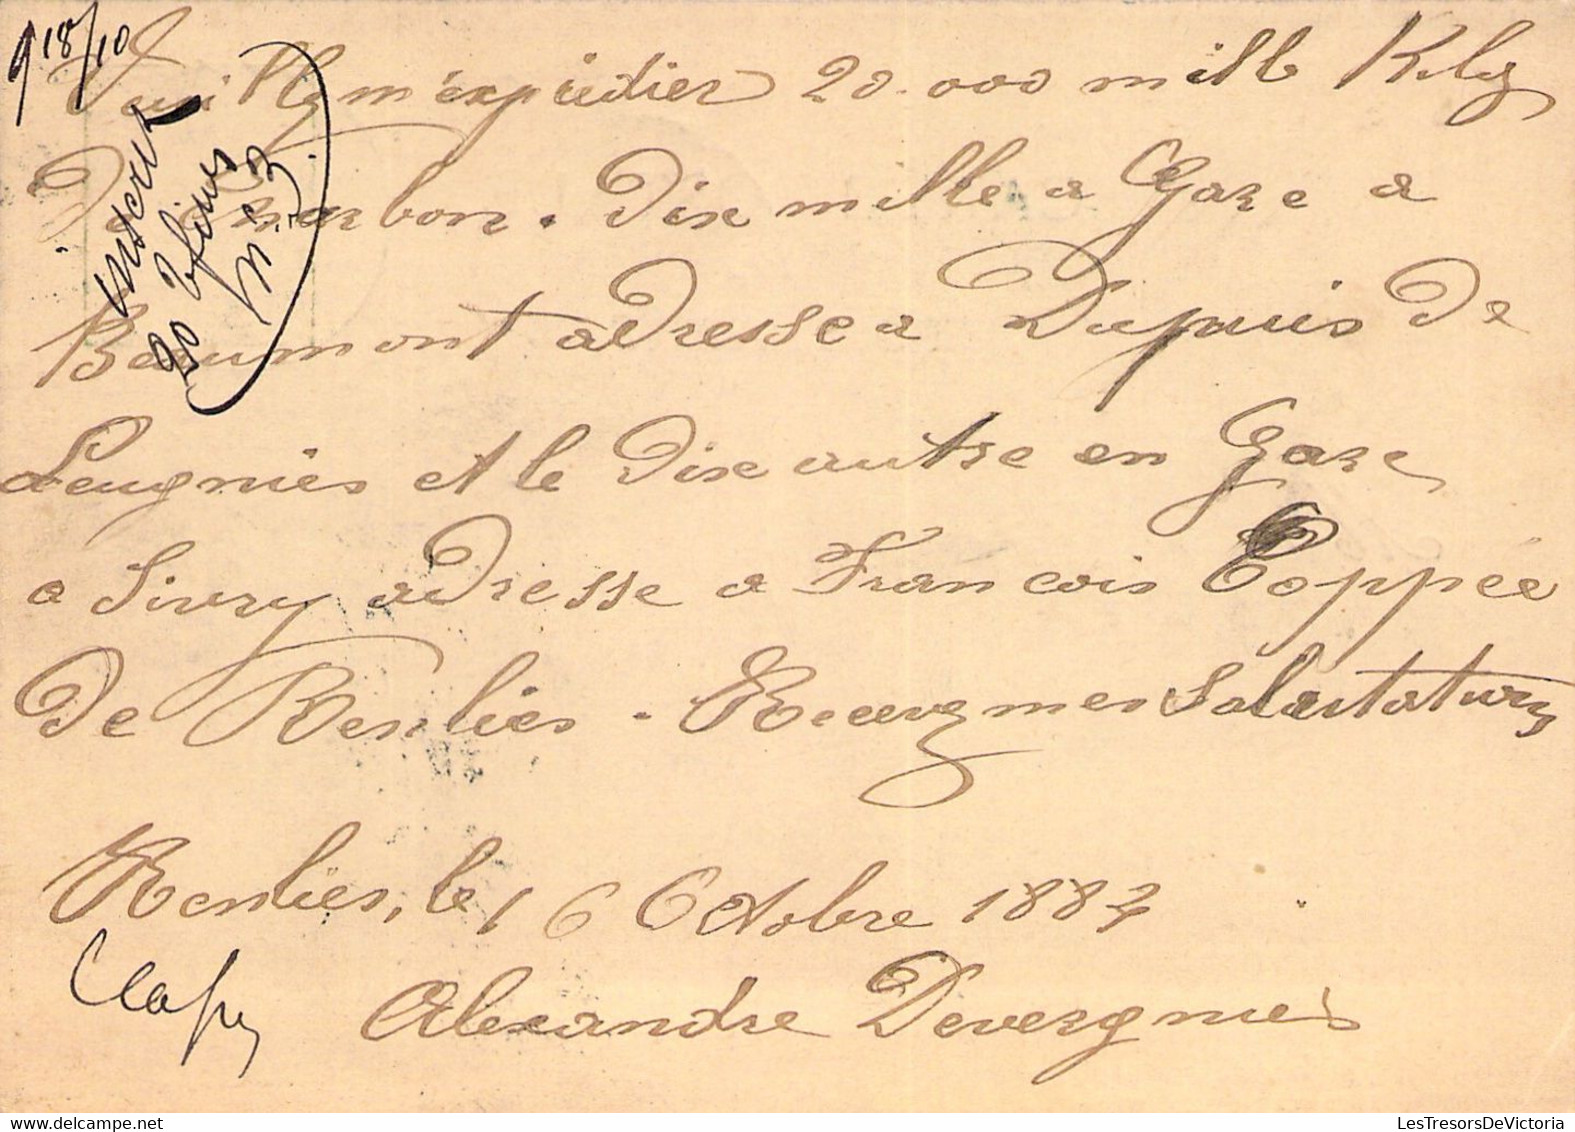 18/10
m'expédier 20.000 mille Klg
De Charbon. Dix mille a Gare a
Beaumont adresse a Dupuis De
Leugnies et le Dix autre en Gare
a Sivry adresse a Francois Coppée
De Renlies. Recevez mes Salutations
Renlies, le 16 Octobre 1883
Alexandre Devergnies
LesTresorsDeVictoria.com